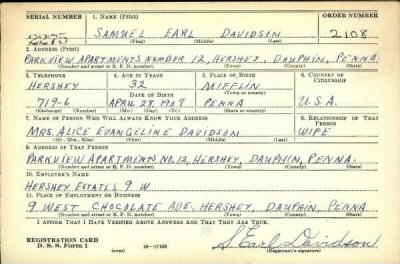 SERIAL NUMBER 1. NAME (Print) ORDER NUMBER
SAMUEL EARL DAVIDSON 2108
(First) (Middle) (Last)
2. ADDRESS (Print)
PARKVIEW APARTMENTS NUMBER 12, HERSHEY, DAUPHIN, PENNA.
(Number and street or R. F. D. number) (Town) (County) (State)
3. TELEPHONE 4. AGE IN YEARS 5. PLACE OF BIRTH 6. COUNTRY OF CITIZENSHIP
HERSHEY 32 MIFFLIN
(Town or county)
DATE OF BIRTH
719-6 APRIL 28, 1908 PENNA U.S.A.
(Exchange) (Number) (Mo.) (Day) (Yr.) (State or country)
7. NAME OF PERSON WHO WILL ALWAYS KNOW YOUR ADDRESS 8. RELATIONSHIP OF THAT PERSON
MRS. ALICE EVANGELINE DAVIDSON WIFE
(Mr., Mrs., Miss) (First) (Middle) (Last)
9. ADDRESS OF THAT PERSON
PARKVIEW APARTMENTS NO. 12, HERSHEY, DAUPHIN, PENNA.
(Number and street or R. F. D. number) (Town) (County) (State)
10. EMPLOYER'S NAME
HERSHEY ESTATES 9 W
11. PLACE OF EMPLOYMENT OR BUSINESS
9 WEST CHOCOLATE AVE. HERSHEY, DAUPHIN, PENNA
(Number and street or R. F. D. number) (Town) (County) (State)
I AFFIRM THAT I HAVE VERIFIED ABOVE ANSWERS AND THAT THEY ARE TRUE.
REGISTRATION CARD
D. S. S. Form 1 (over) 16-17105 S Earl Davidson
(Registrant's signature)